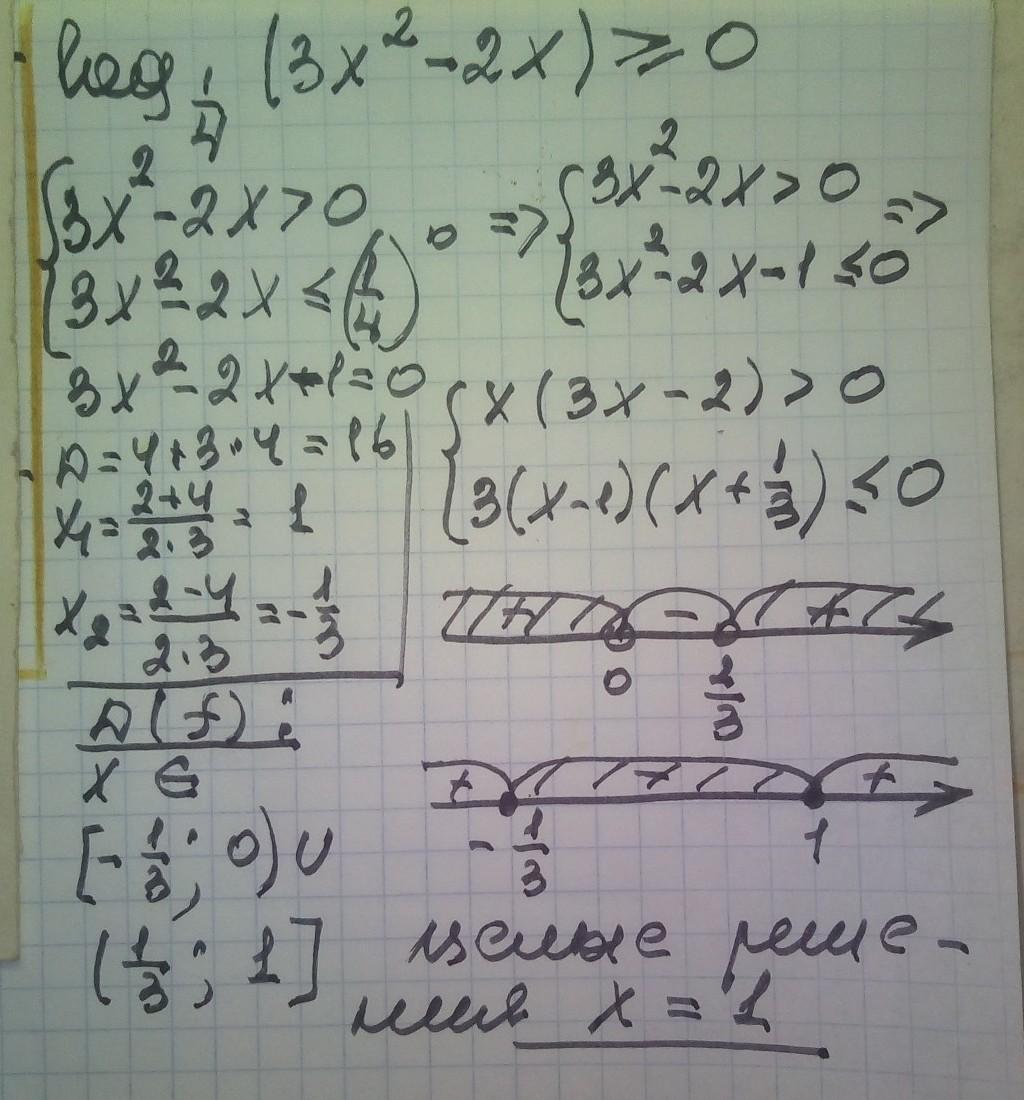 log 1/4 (3x² - 2x) ≥ 0
{ 3x² - 2x > 0
3x² - 2x ≤ (1/4)⁰
=> { 3x² - 2x > 0
3x² - 2x - 1 ≤ 0 =>
3x² - 2x - 1 = 0
D = 4 + 3·4 = 16
x₁ = (2+4)/(2·3) = 1
x₂ = (2-4)/(2·3) = -1/3
{ x(3x - 2) > 0
3(x-1)(x + 1/3) ≤ 0
+ - +
0 2/3
+ + +
-1/3 1
D(f):
x ∈
[-1/3; 0) ∪
(1/3; 1]
целые реше-
ния x = 1